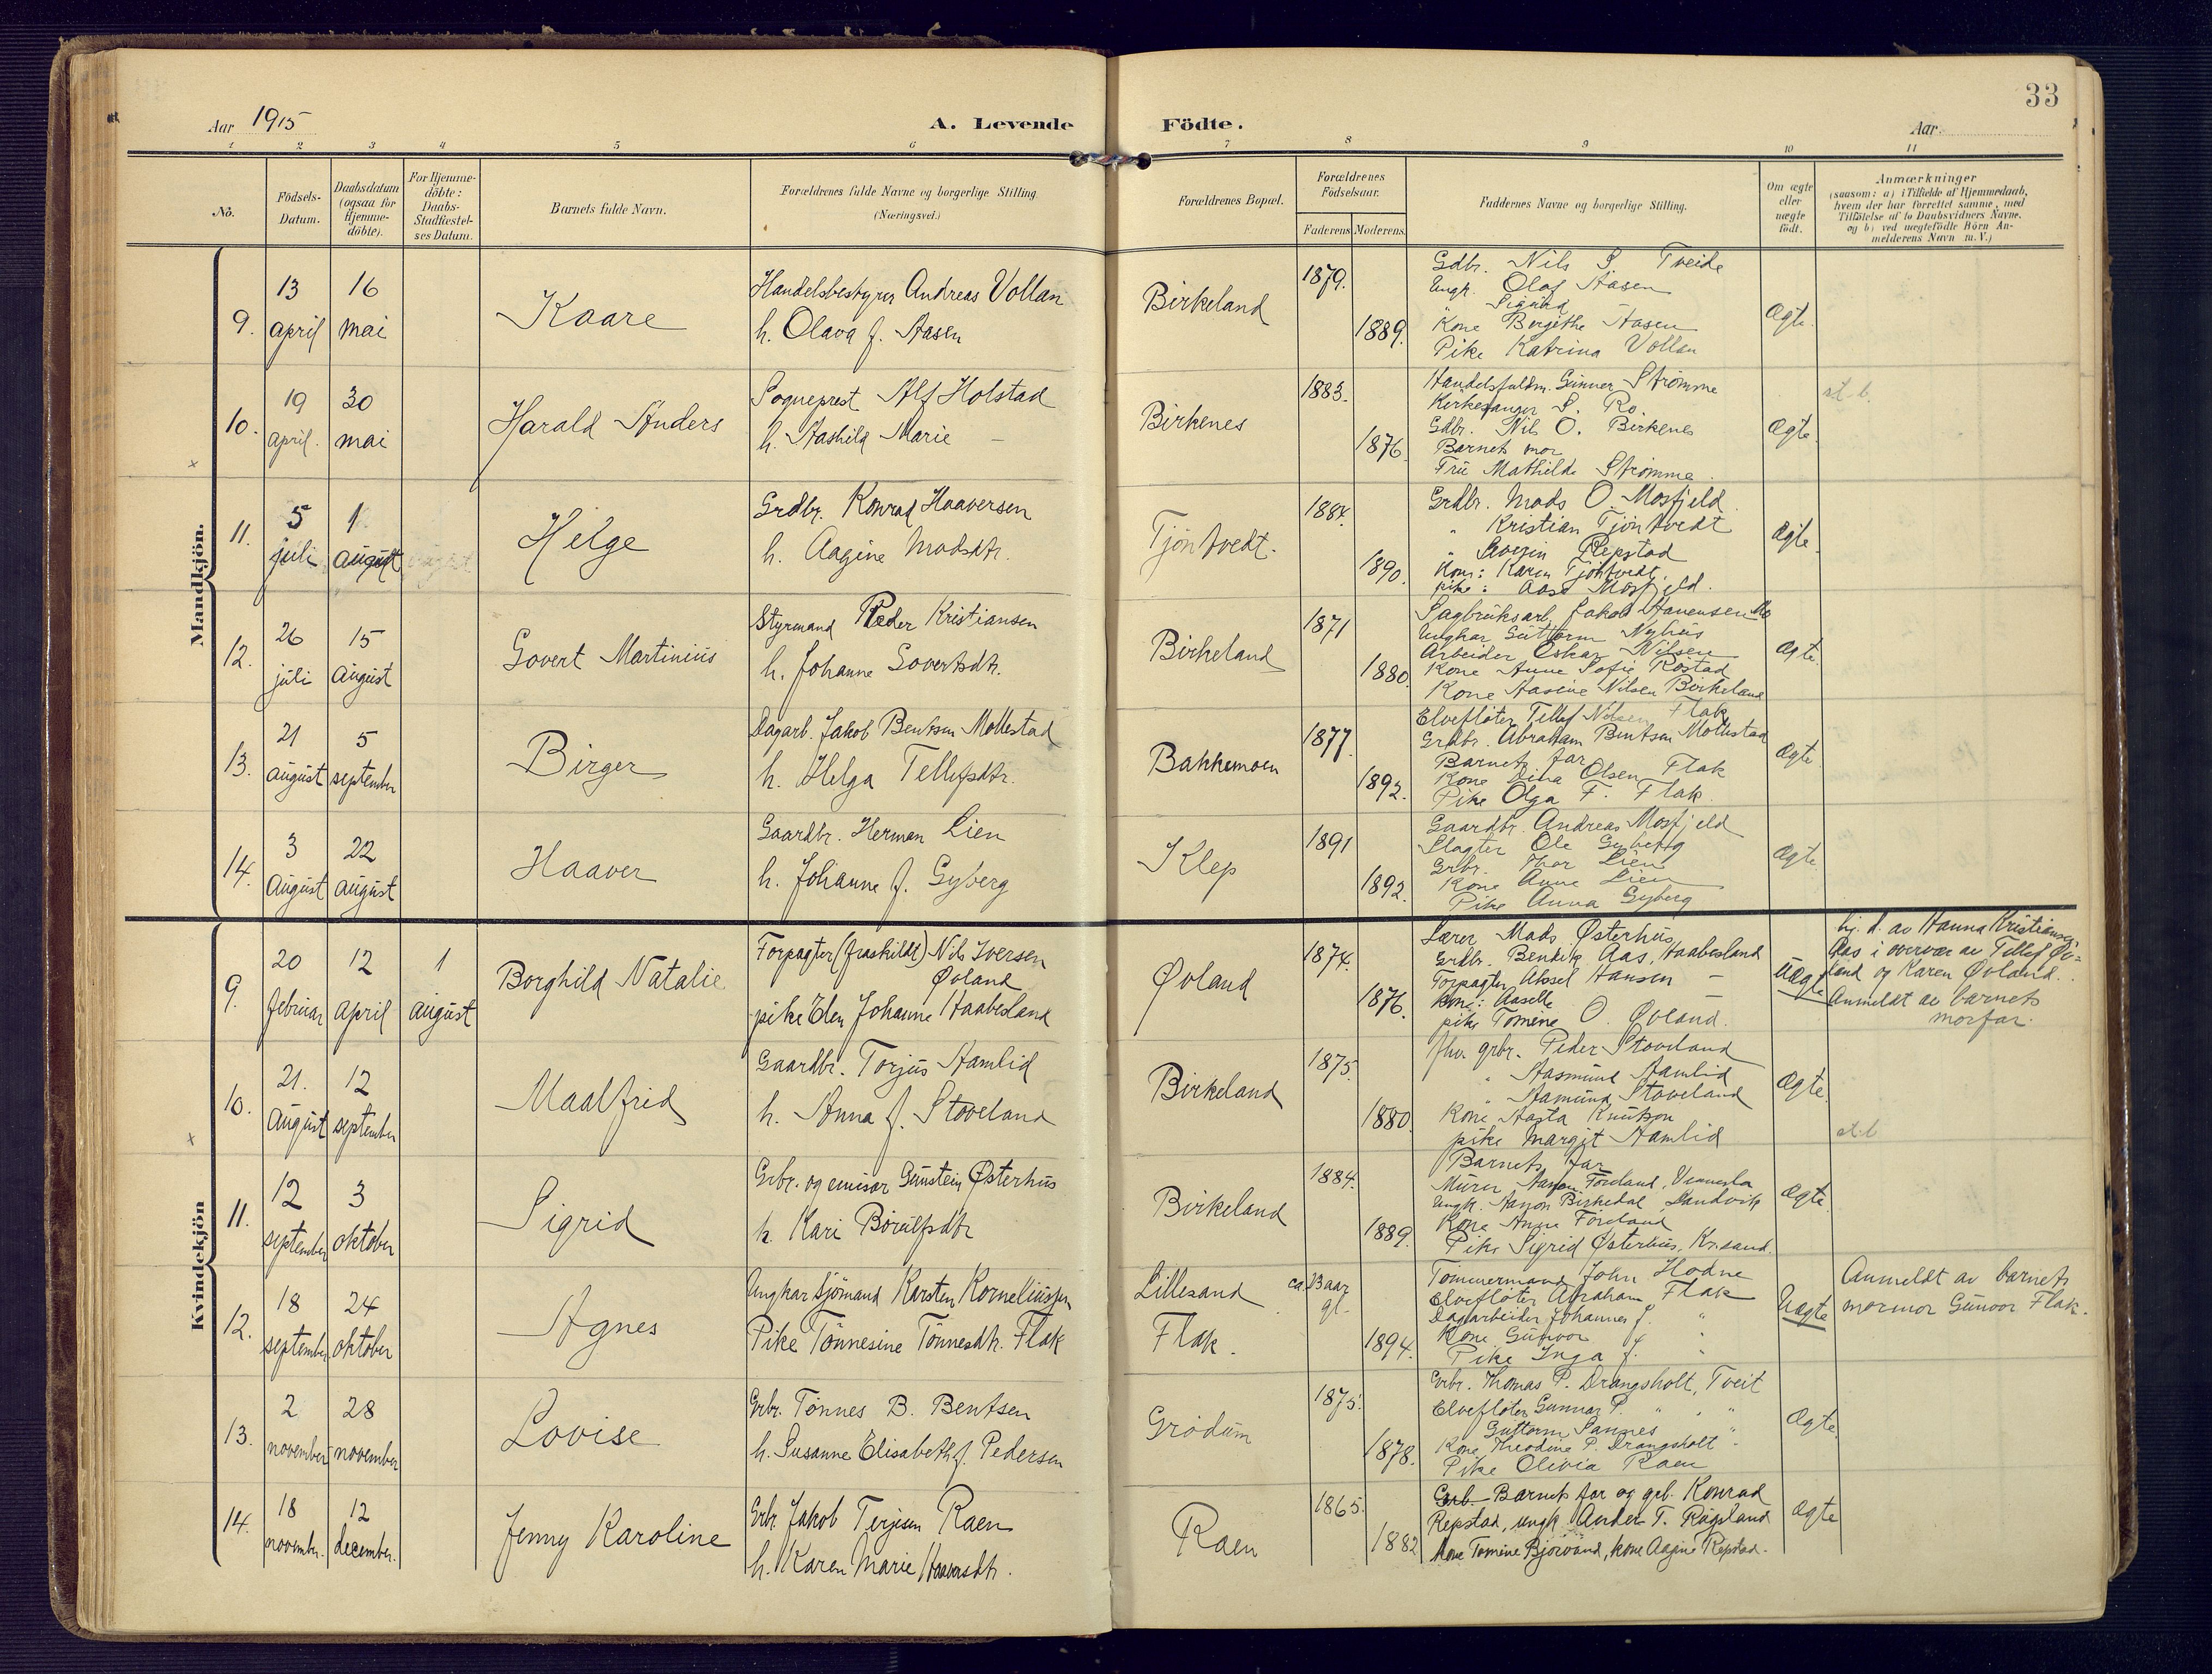 33
Aar 1915
A. Levende Födte.
Aar
1 2 3 4 5 6 7 8 9 10 11
No.
Födsels-
Datum.
Daabsdatum
(ogsaa for
Hjemme-
döbte).
For Hjemme-
döbte:
Daabs-
Stadfæstel-
ses Datum.
Barnets fulde Navn.
Forældrenes fulde Navne og borgerlige Stilling.
(Næringsvei.)
Forældrenes Bopæl.
Forældrenes
Födselsaar.
Faderens Moderens.
Faddernes Navne og borgerlige Stilling.
Om ægte
eller
uægte
födt.
Anmærkninger
(saasom: a) i Tilfælde af Hjemmedaab,
hvem der har forrettet samme, med
Tilföielse af to Daabsvidners Navne.
og b) ved uægtefödte Börn An-
melderens Navn m. V.)
Mandkjön.
9.
13
april
16
mai
Kaare
Handelsbestyrer Andreas Vollan
h. Olava f. Aasen
Birkeland
1879.
1889.
Gdbr. Nils S. Tveide
Ungk. Olaf Aasen
Sigurd
Kone Bergithe Aasen
Pike Katrina Vollan
Ægte.
10.
19
april.
30
mai
Harald Anders
Sogneprest Alf Holstad
h. Aashild Marie –
Birkenes
1883.
1876.
Handelsfuldm. Gunner Strømme
Kirkesanger S. Ro.
Gdbr. Nils O. Birkenes
Barnets mor
Fru Mathilde Strømme.
Ægte.
at. b.
11.
5
juli
1
august
Helge
Grdbr. Konrad Haaversen
h. Aagine Madsdtr.
Tjöntvedt.
1884.
1890.
Grdbr. Mads O. Mosfjeld
" Kristian Tjöntvedt
" Severin Repstad
Kone: Karen Tjöntvedt.
pike: Aase Mosfjeld.
Ægte.
12.
26
juli
15
August
Govert Martinius
Styrmand Peder Kristiansen
h. Johanne Govertsdtr.
Birkeland
1871
1880.
Sagbruksarb. Jakob Hanensen Mo
Ungkar Guttorm Nyhus
Arbeider Oskar Nilsen
Kone Anne Sofie Rostad
Kone Aasine Nilsen Birkeland
Ægte.
13.
21
august
5
september
Birger
Dagarb. Jakob Bentsen Mollestad
h. Helga Tellefsdtr.
Bakkemoen
1877.
1892.
Elvefløter Tellef Nilsen Flak
Grdbr. Abraham Bentsen Mollestad
Barnets far
Kone Dina Olsen Flak
Pike Olga T. Flak.
Ægte.
14.
3
August
22
august
Haaver
Gaardbr. Herman Lien
h. Johanne f. Gyberg
Klep
1891
1892.
Gaardbr. Andreas Mosfjeld
Slagter Ole Gyberg
Grbr. Thor Lien
Kone Anne Lien
Pike Anna Gyberg
Ægte.
Kvindekjön
9.
20
februar
12
april
1
august
Borghild Natalie
Forpagter (fraskildt) Nils Iversen
Øvland
pike Elen Johanne Haabesland
Øvland
1874.
1876.
Lærer Mads Østerhus
Grdbr. Bendik Aas, Haabesland
Forpagter Aksel Hansen –
Kone: Aaselle –
pike Tomine O. Øvland.
Uægte
hj. d. av Hanna Kristiansen
Aas i overvær av Tellef Øv-
land og Karen Øvland.
Anmeldt av barnets
morfar.
10.
21.
August
12
september
Maalfrid
Gaardbr. Torjus Hamlid
h. Anna f. Stoveland
Birkeland
1875.
1880.
fhv. grbr. Peder Stoveland
" Aasmund Hamlid
" Aamund Stoveland
Kone Aasta Knutson
pike Margit Hamlid
Ægte.
at. b
11.
12
september
3
oktober
Sigrid
Grbr. og emisær Gunstein Østerhus
h. Kari Børulfsdtr
Birkeland
1884.
1889.
Barnets far
Murer Aanon Føreland, Vennesla
Ungk. Aanon Birkedal, Sandvik
Kone Anne Føreland
Pike Sigrid Østerhus, Kr.sand.
Ægte.
12.
18
september
24
oktober
Agnes
Ungkar sjömand Karsten Korneliussen
Pike Tönnesine Tönnesdtr. Flak
Lillesand
Flak.
ca. 23 aar
gl.
1894.
Tømmermand John Hodne
Elvefløter Abraham Flak
Dagarbeider Johannes f. "
Kone Gunvor f. "
Pike Inga f. "
Uægte
Anmeldt av barnets
mormor Gunvor Flak.
13.
2
november
28
november
Lovise
Grbr. Tönnes B. Bentsen
h. Susanne Elisabeth f. Pedersen
Grödum
1875.
1878.
Grbr. Thomas P. Drangsholt, Tveit
Elvefløter Gunnar P. " " "
Guttorm Sannes "
Kone Theodine P. Drangsholt "
Pike Olivia Raen
Ægte.
14.
18
november.
12
december.
Jenny Karoline
Grbr. Jakob Terjesen Raen
h. Karen Marie Haaversdtr.
Raen
1865.
1882
Grb. Barnets far og grb. Konrad
Repstad, ungk. Ander T. Rugsland
Kone Tomine Bjorvand, kone Aagine Repstad.
Ægte